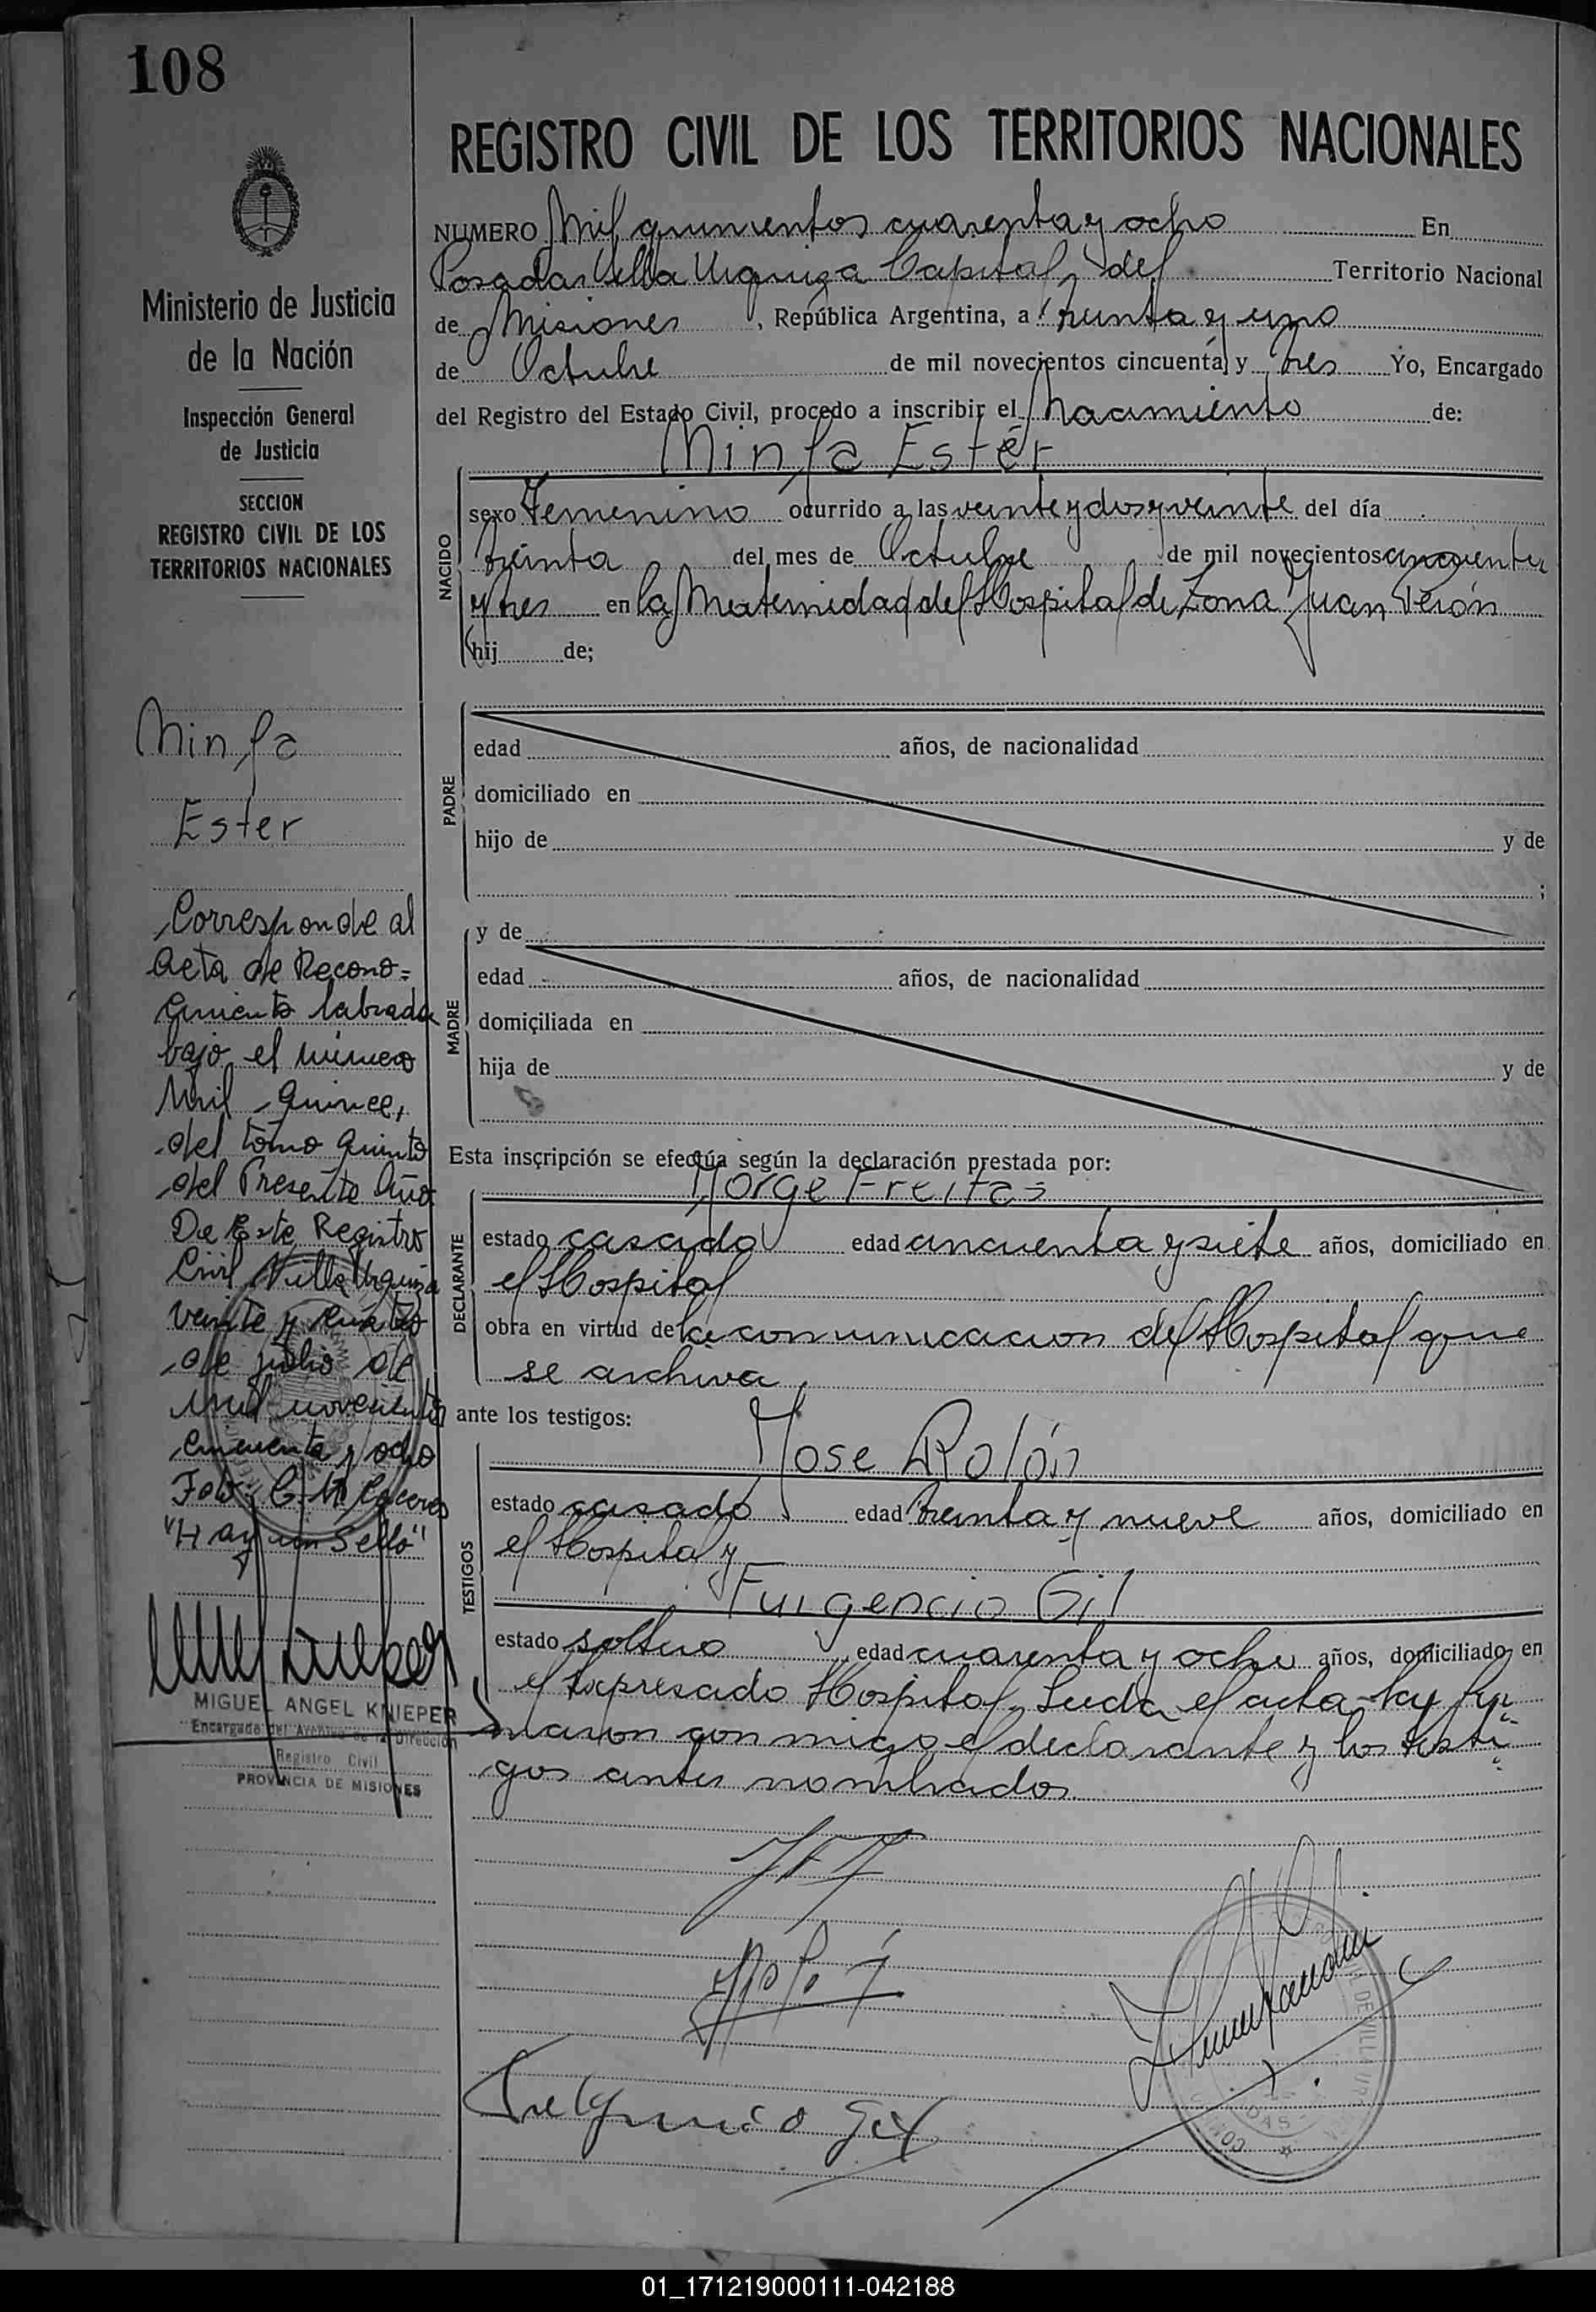 108
Ministerio de Justicia
de la Nación
Inspección General
de Justicia
SECCION
REGISTRO CIVIL DE LOS
TERRITORIOS NACIONALES
Ninfa
Ester
Corresponde al
Acta de Recono=
cimiento labrada
bajo el número
Mil quince,
del tomo quinto
del Presente Año
De Este Registro
Civil Villa Urquiza
veinte y cuatro
de julio de
mil novecientos
cincuenta y ocho
Fdo: C. M. Caceres
"Hay un Sello"
MIGUEL ANGEL KNIEPER
Encargado del Archivo de la Dirección
Registro Civil
PROVINCIA DE MISIONES
REGISTRO CIVIL DE LOS TERRITORIOS NACIONALES
NUMERO Mil quinientos cuarenta y ocho En
Posadas Villa Urquiza Capital del Territorio Nacional
de Misiones, República Argentina, a treinta y uno
de Octubre de mil novecientos cincuenta y tres Yo, Encargado
del Registro del Estado Civil, procedo a inscribir el Nacimiento de:
Ninfa Ester
NACIDO
sexo Femenino ocurrido a las veinte y dos y veinte del día
treinta del mes de Octubre de mil novecientos cincuenta
y tres en la Maternidad del Hospital de Zona Juan Perón
hij de;
PADRE
edad años, de nacionalidad
domiciliado en
hijo de y de
;
MADRE
y de
edad años, de nacionalidad
domiciliada en
hija de y de
Esta inscripción se efectúa según la declaración prestada por:
Jorge Freitas
DECLARANTE
estado casado edad cincuenta y siete años, domiciliado en
el Hospital
obra en virtud de la comunicacion del Hospital que
se archiva
ante los testigos:
Jose Rolón
TESTIGOS
estado casado edad treinta y nueve años, domiciliado en
el Hospital y
Fulgencio Gil
estado soltero edad cuarenta y ocho años, domiciliado en
el Expresado Hospital, Leida el acta la fir
maron conmigo el declarante y los testi
gos antes nombrados
Fulgencio Gil
01_171219000111-042188